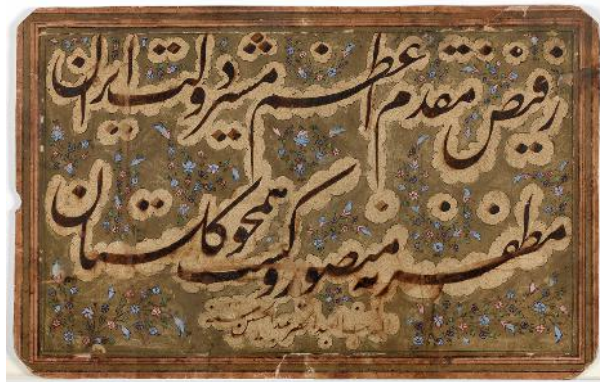 ز فیض مقدم اعظم مشیر دولت ایران
مظفریه منصور و کشت همچو کلستان